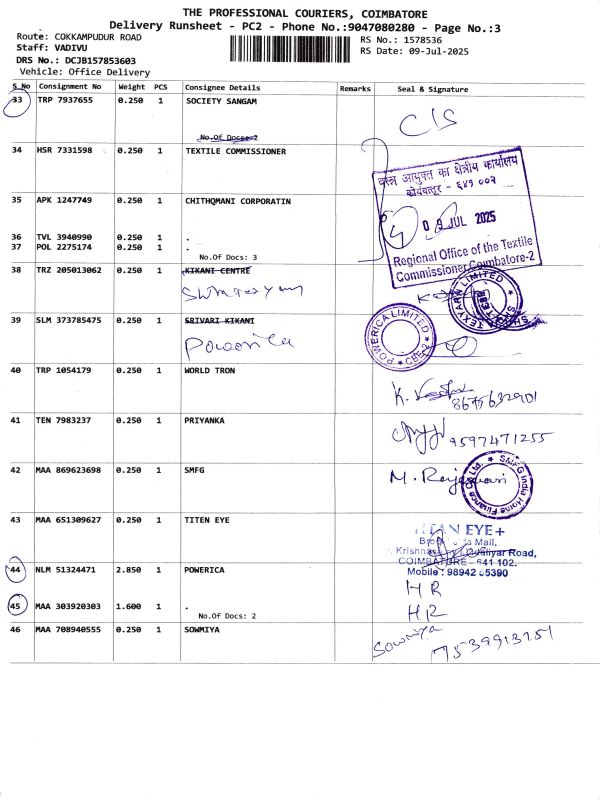 THE PROFESSIONAL COURIERS, COIMBATORE
Delivery Runsheet - PC2 - Phone No.:9047080280 - Page No.:3
Route: COKKAMPUDUR ROAD
Staff: VADIVU
DRS No.: DCJB157853603
Vehicle: Office Delivery
RS No.: 1578536
RS Date: 09-Jul-2025
S_No Consignment No Weight PCS Consignee Details Remarks Seal & Signature
33 TRP 7937655 0.250 1 SOCIETY SANGAM
No.Of Docs: 2
C/S
34 HSR 7331598 0.250 1 TEXTILE COMMISSIONER
वस्त्र आयुक्त का क्षेत्रीय कार्यालय
कोयंबत्तूर - ६४१ ००२
35 APK 1247749 0.250 1 CHITHQMANI CORPORATIN
0 9 JUL 2025
36 TVL 3940990 0.250 1 .
37 POL 2275174 0.250 1 .
No.Of Docs: 3
Regional Office of the Textile
Commissioner Coimbatore-2
38 TRZ 205013062 0.250 1 KIKANI CENTRE
TEXYARN LIMITED
39 SLM 373785475 0.250 1 SRIVARI KIKANI
Powerica
POWERICA LIMITED
CBE-2
40 TRP 1054179 0.250 1 WORLD TRON
8675632901
41 TEN 7983237 0.250 1 PRIYANKA
9597471255
42 MAA 869623698 0.250 1 SMFG
M. Rajeswari
SMFG India Home Finance Co. Ltd.
43 MAA 651309627 0.250 1 TITEN EYE
TITAN EYE+
Mall,
Krishnaswamy Mudaliyar Road,
COIMBATORE - 641 102.
Mobile : 98942 55390
44 NLM 51324471 2.850 1 POWERICA
HR
45 MAA 303920303 1.600 1 .
No.Of Docs: 2
HR
46 MAA 708940555 0.250 1 SOWMIYA
Sowmiya
7539913251